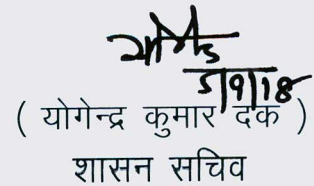 5/9/18
( योगेन्द्र कुमार दक )
शासन सचिव